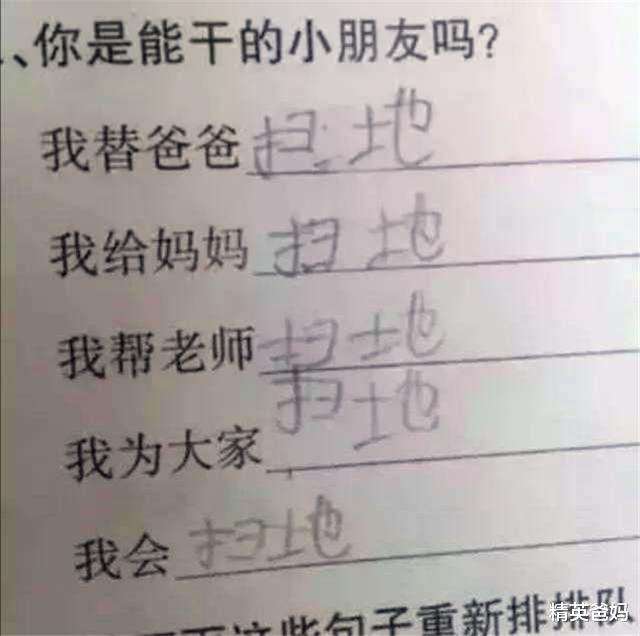 、你是能干的小朋友吗?
我替爸爸扫地
我给妈妈扫地
我帮老师扫地
我为大家扫地
我会扫地
这些句子重新排排队
精英爸妈